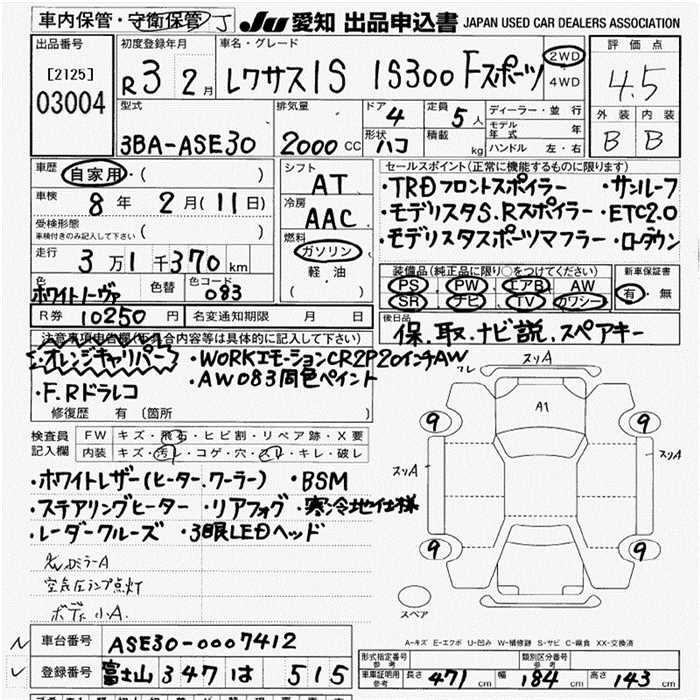 車内保管・守衛保管 J JU 愛知 出品申込書 JAPAN USED CAR DEALERS ASSOCIATION
出品番号 初度登録年月 車名・グレード 評価点
[2125] 03004 R3 2月 レクサスIS IS300 Fスポーツ 2WD 4WD 4.5
型式 排気量 ドア 4 定員 5人 ディーラー・並行 外装 内装
3BA-ASE30 2000 CC 形状 ハコ 積載 kg モデル年式 年 B B
ハンドル 左・右
車歴 自家用・( ) シフト AT セールスポイント(正常に機能するものに限ります)
車検 8年 2月(11日) 冷房 AAC ・TRDフロントスポイラー ・サンルーフ
受検形態 ( ) ・モデリスタS.Rスポイラー ・ETC2.0
車検付きのみ記入して下さい 燃料 ガソリン ・モデリスタスポーツマフラー ・ローダウン
走行 3万1千370km 軽・油 装備品(純正品に限り○をつけてください) 新車保証書
色 ホワイトノーヴァ 色替 色コード 083 ( ) PS PW エアB AW 有・無
SR ナビ TV カワシート
R券 10250円 名変通知期限 月 日 後日品
保.取.ナビ説.スペアキー
注意事項申告欄(不具合内容等は具体的に記入して下さい)
・オレンジキャリパー ・WORKエモーションCR2P20インチAW
・AW083同色ペイント
・F.Rドラレコ
修復歴 有 (箇所 )
検査員記入欄 FW キズ・飛石・ヒビ割・リペア跡・X要
内装 キズ・汚レ・コゲ・穴・スレ・キレ・破レ
・ホワイトレザー(ヒーター.クーラー) ・BSM
・ステアリングヒーター ・リアフォグ ・寒冷地仕様
・レーダークルーズ ・3眼LEDヘッド
空気圧ランプ点灯
ボディ小A
スリA
A1
9 9
スリA スリA
9 9
スペア
A-キズ E-エクボ U-凹み W-補修跡 S-サビ C-腐食 XX-交換済
車台番号 ASE30-0007412
形式指定番号 参考 類別区分番号 参考
登録番号 富士山 347 は 515
車庫証明用 参考 長さ 471 cm 幅 184 cm 高さ 143 cm